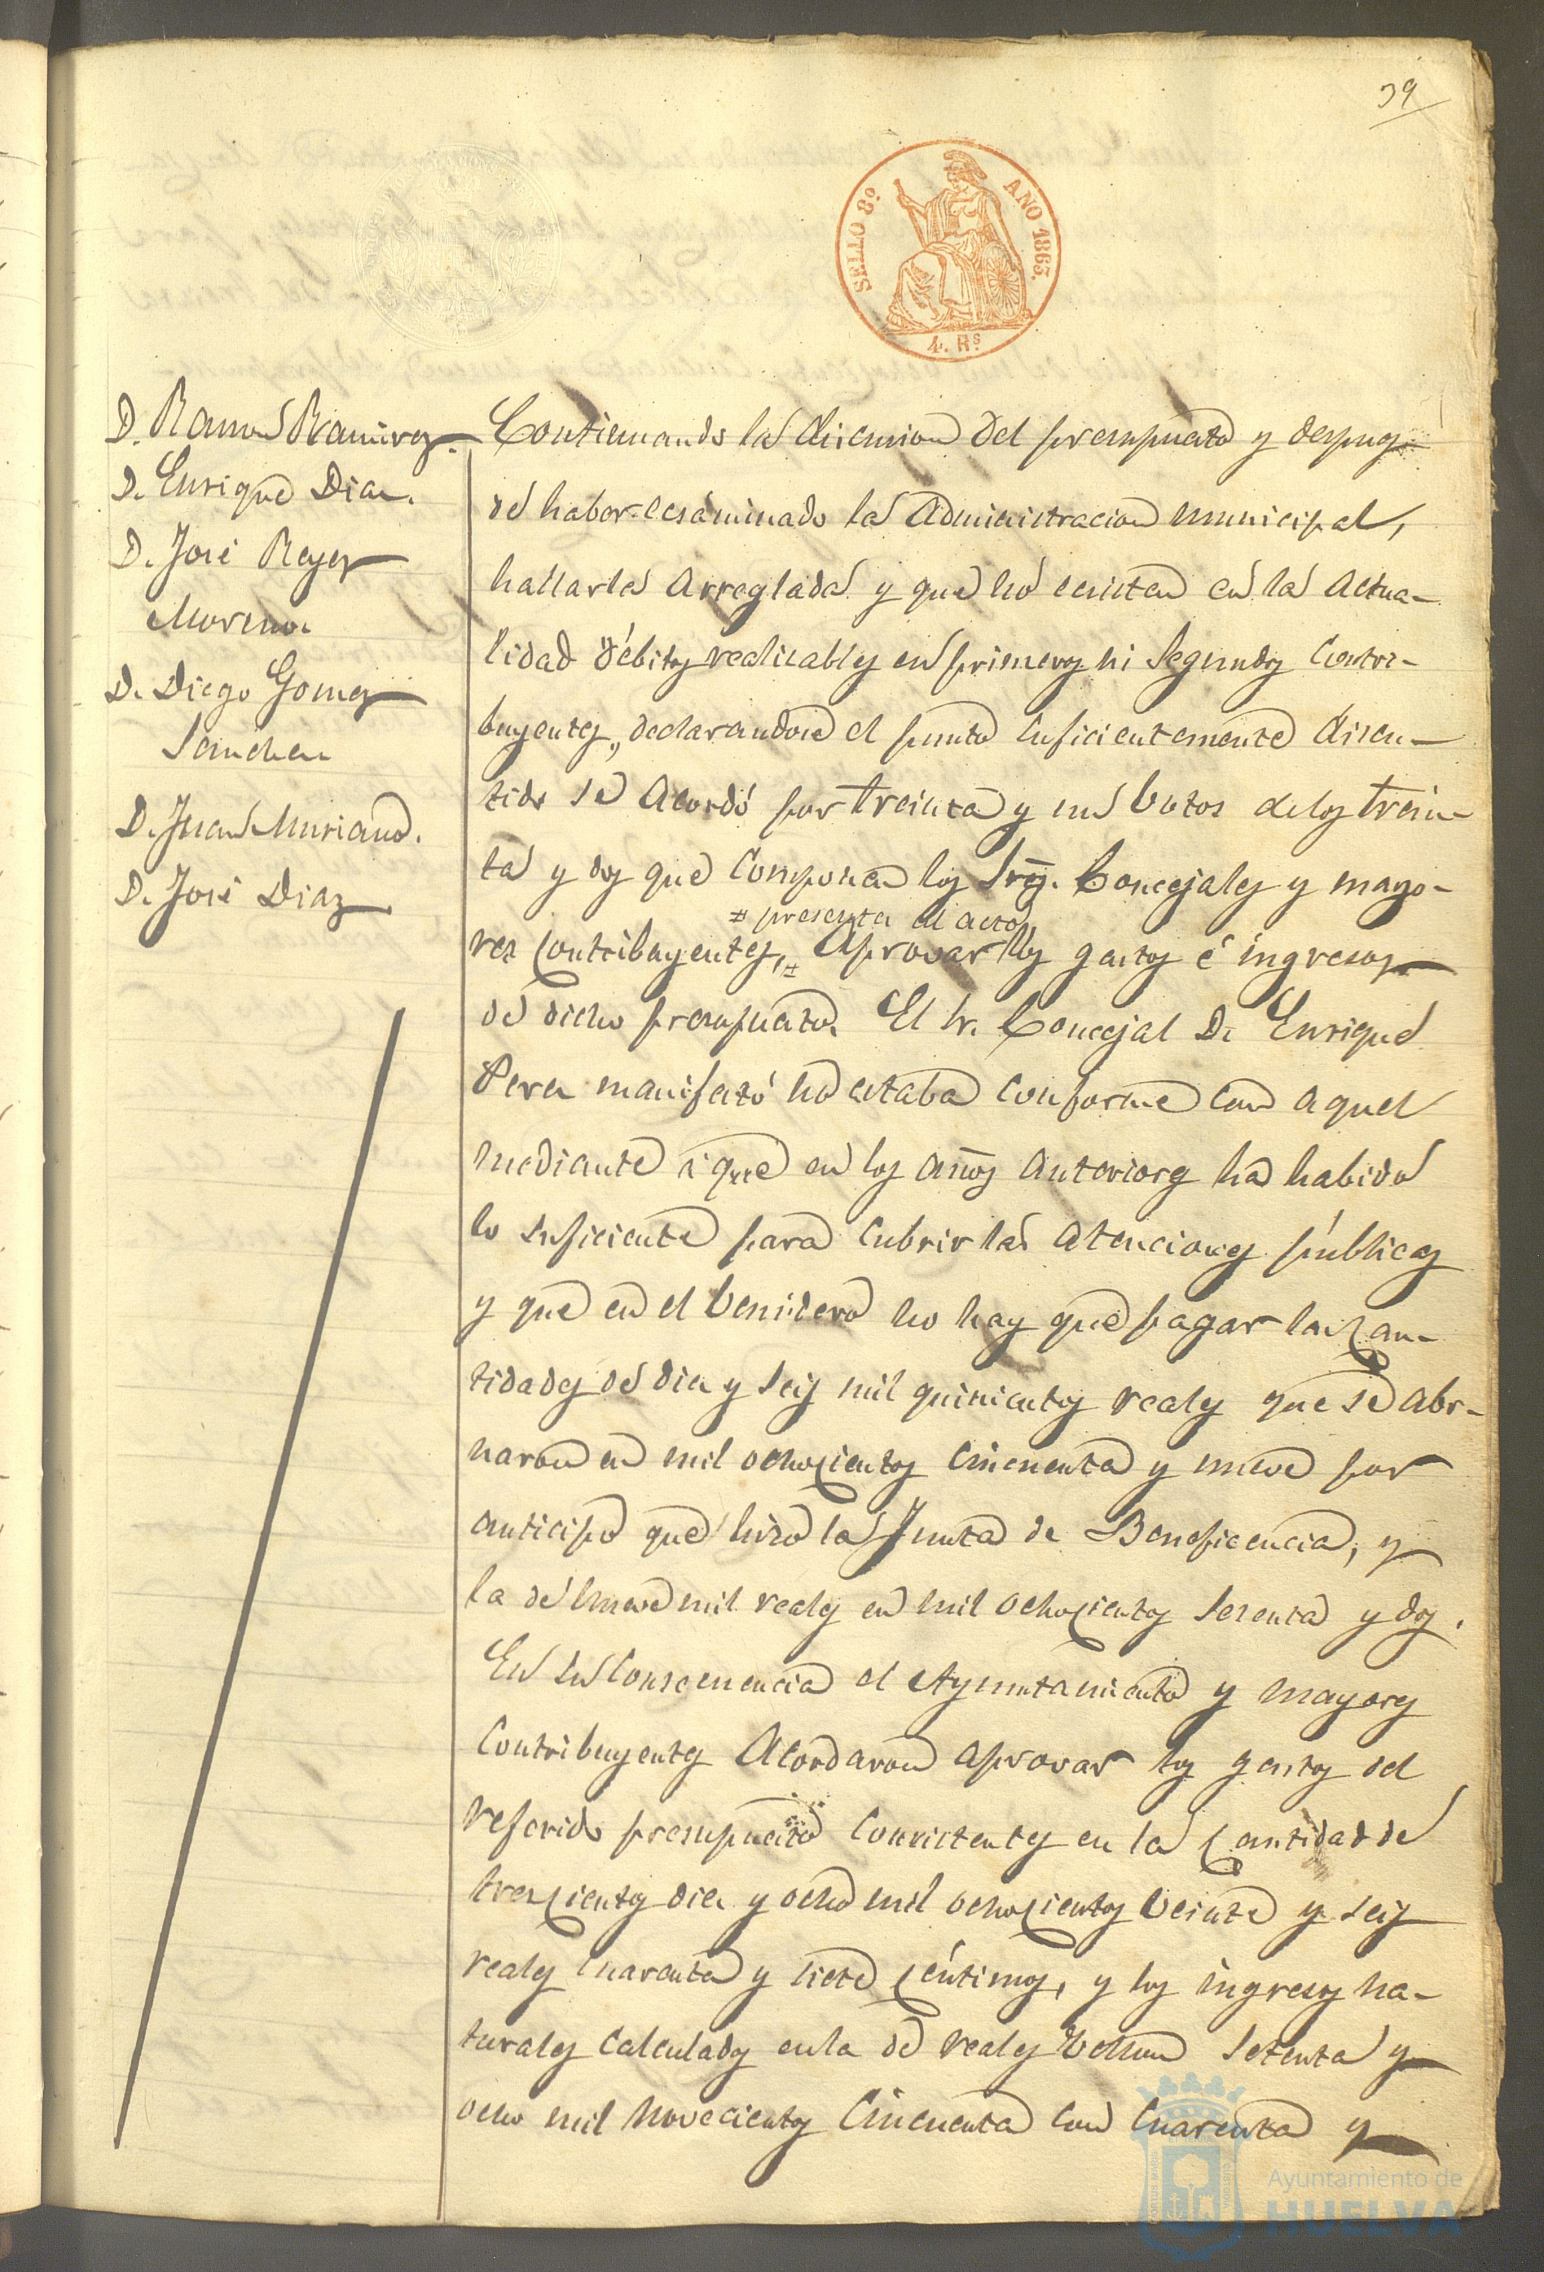 39
SELLO 8º AÑO 1863.
4. Rs
D. Ramon Ramirez.
D. Enrique Diaz.
D. José Reyes
Moreno.
D. Diego Gomez
Sanchez
D. Juan Muriano.
D. José Diaz
Continuando la discusion del presupuesto y despues
de haber ecsaminado la Administracion municipal,
hallarla arreglada y que no ecsisten en la actua-
lidad débitos realizables en primeros ni Segundos Contri-
buyentes, declarandose el punto suficientemente discu-
tido se Acordó por treinta y un botos de los trein-
ta y dos que Componen los Sres. Concejales y mayo-
# presentes al acto
res Contribuyentes, # aprovar los gastos é ingresos
de dicho presupuesto. El Sr. Concejal D. Enrique
Perez manifestó no estaba Conforme con aquel
mediante á que en los años anteriores ha habido
lo suficiente para Cubrir las atenciones públicas
y que en el benidero no hay que pagar las Can-
tidades de diez y seis mil quinientos reales que se abo-
naron en mil ochocientos Cincuenta y nueve por
anticipo que hizo la Junta de Beneficencia, y
la de nueve mil reales en mil ochocientos sesenta y dos.
En su Consecuencia el Ayuntamiento y mayores
Contribuyentes Acordaron aprovar los gastos del
referido presupuesto Consistentes en la Cantidad de
trescientos diez y ocho mil ochocientos veinte y seis
reales Cuarenta y siete Céntimos, y los ingresos na-
turales Calculados en la de reales vellon Setenta y
ocho mil novecientos Cincuenta con Cuarenta y
Ayuntamiento de
HUELVA